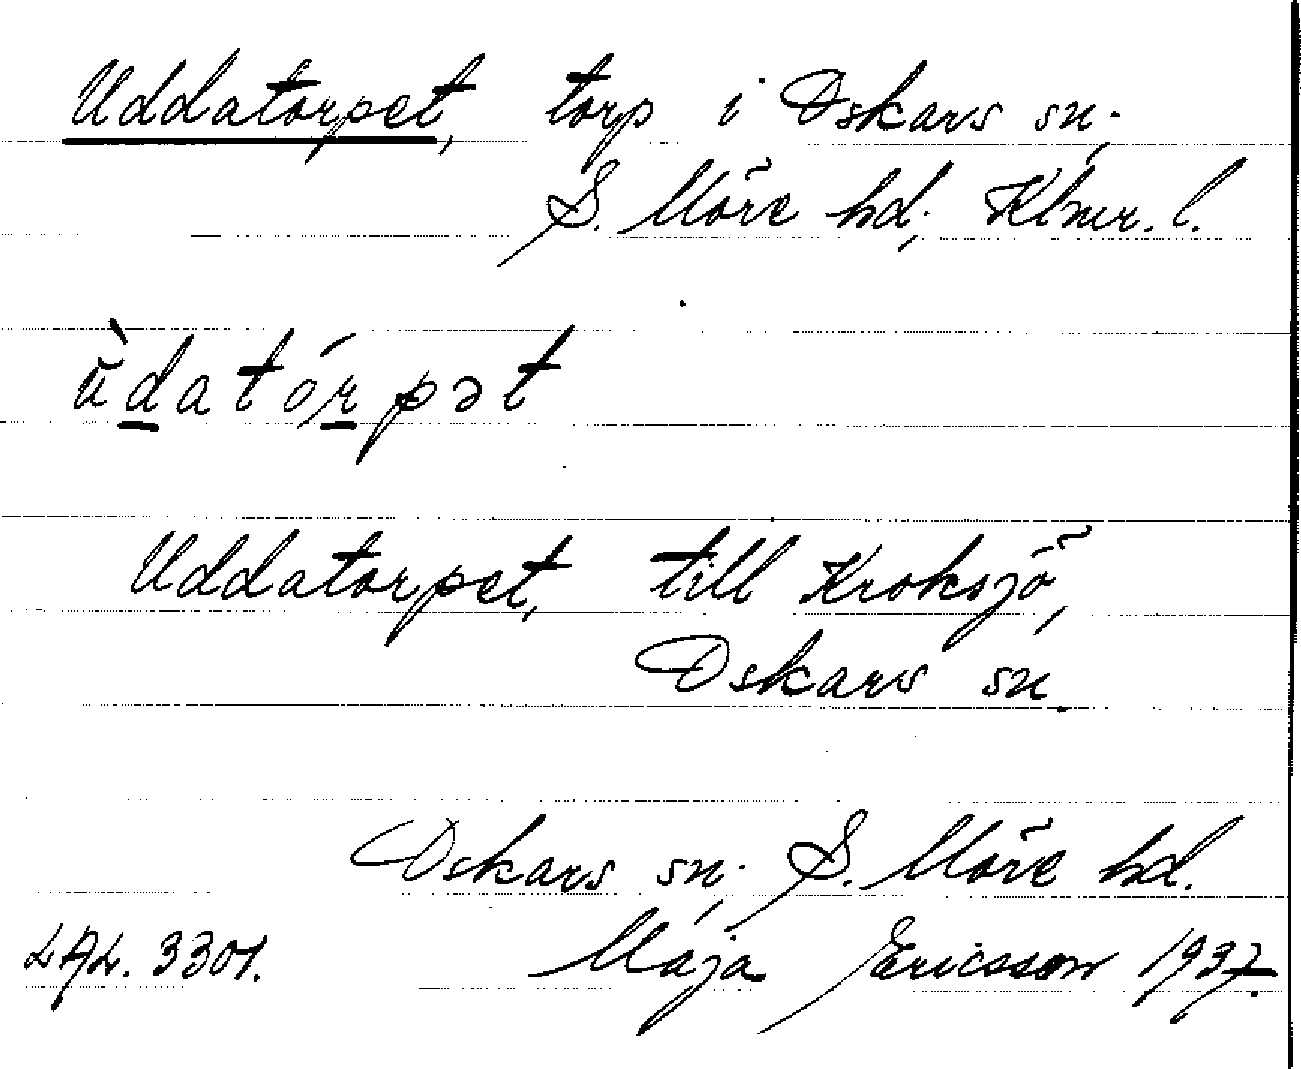 Uddatorpet, torp i Oskars sn,
S. Möre hd, Klmr. l.
ùdatórpət
Uddatorpet, till Kroksjö,
Oskars sn.
Oskars sn, S. Möre hd.
LAL. 3301. Maja Ericsson 1937.